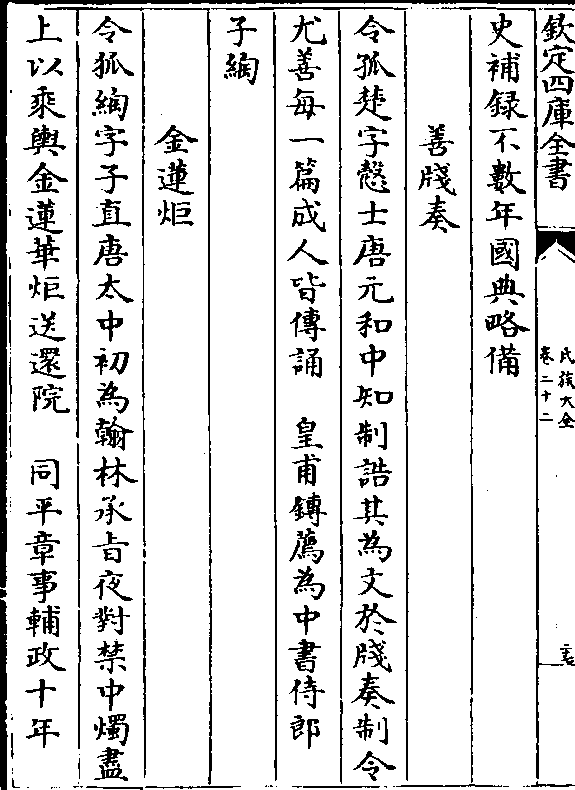 欽定四庫全書
氏族大全
卷二十二
史補録不數年國典略備
善牋奏
令狐楚字慤士唐元和中知制誥其為文於牋奏制令
尤善每一篇成人皆傳誦　皇甫鎛薦為中書侍郎
子綯
金蓮炬
令狐綯字子直唐太中初為翰林承旨夜對禁中燭盡
上以乘輿金蓮華炬送還院　同平章事輔政十年